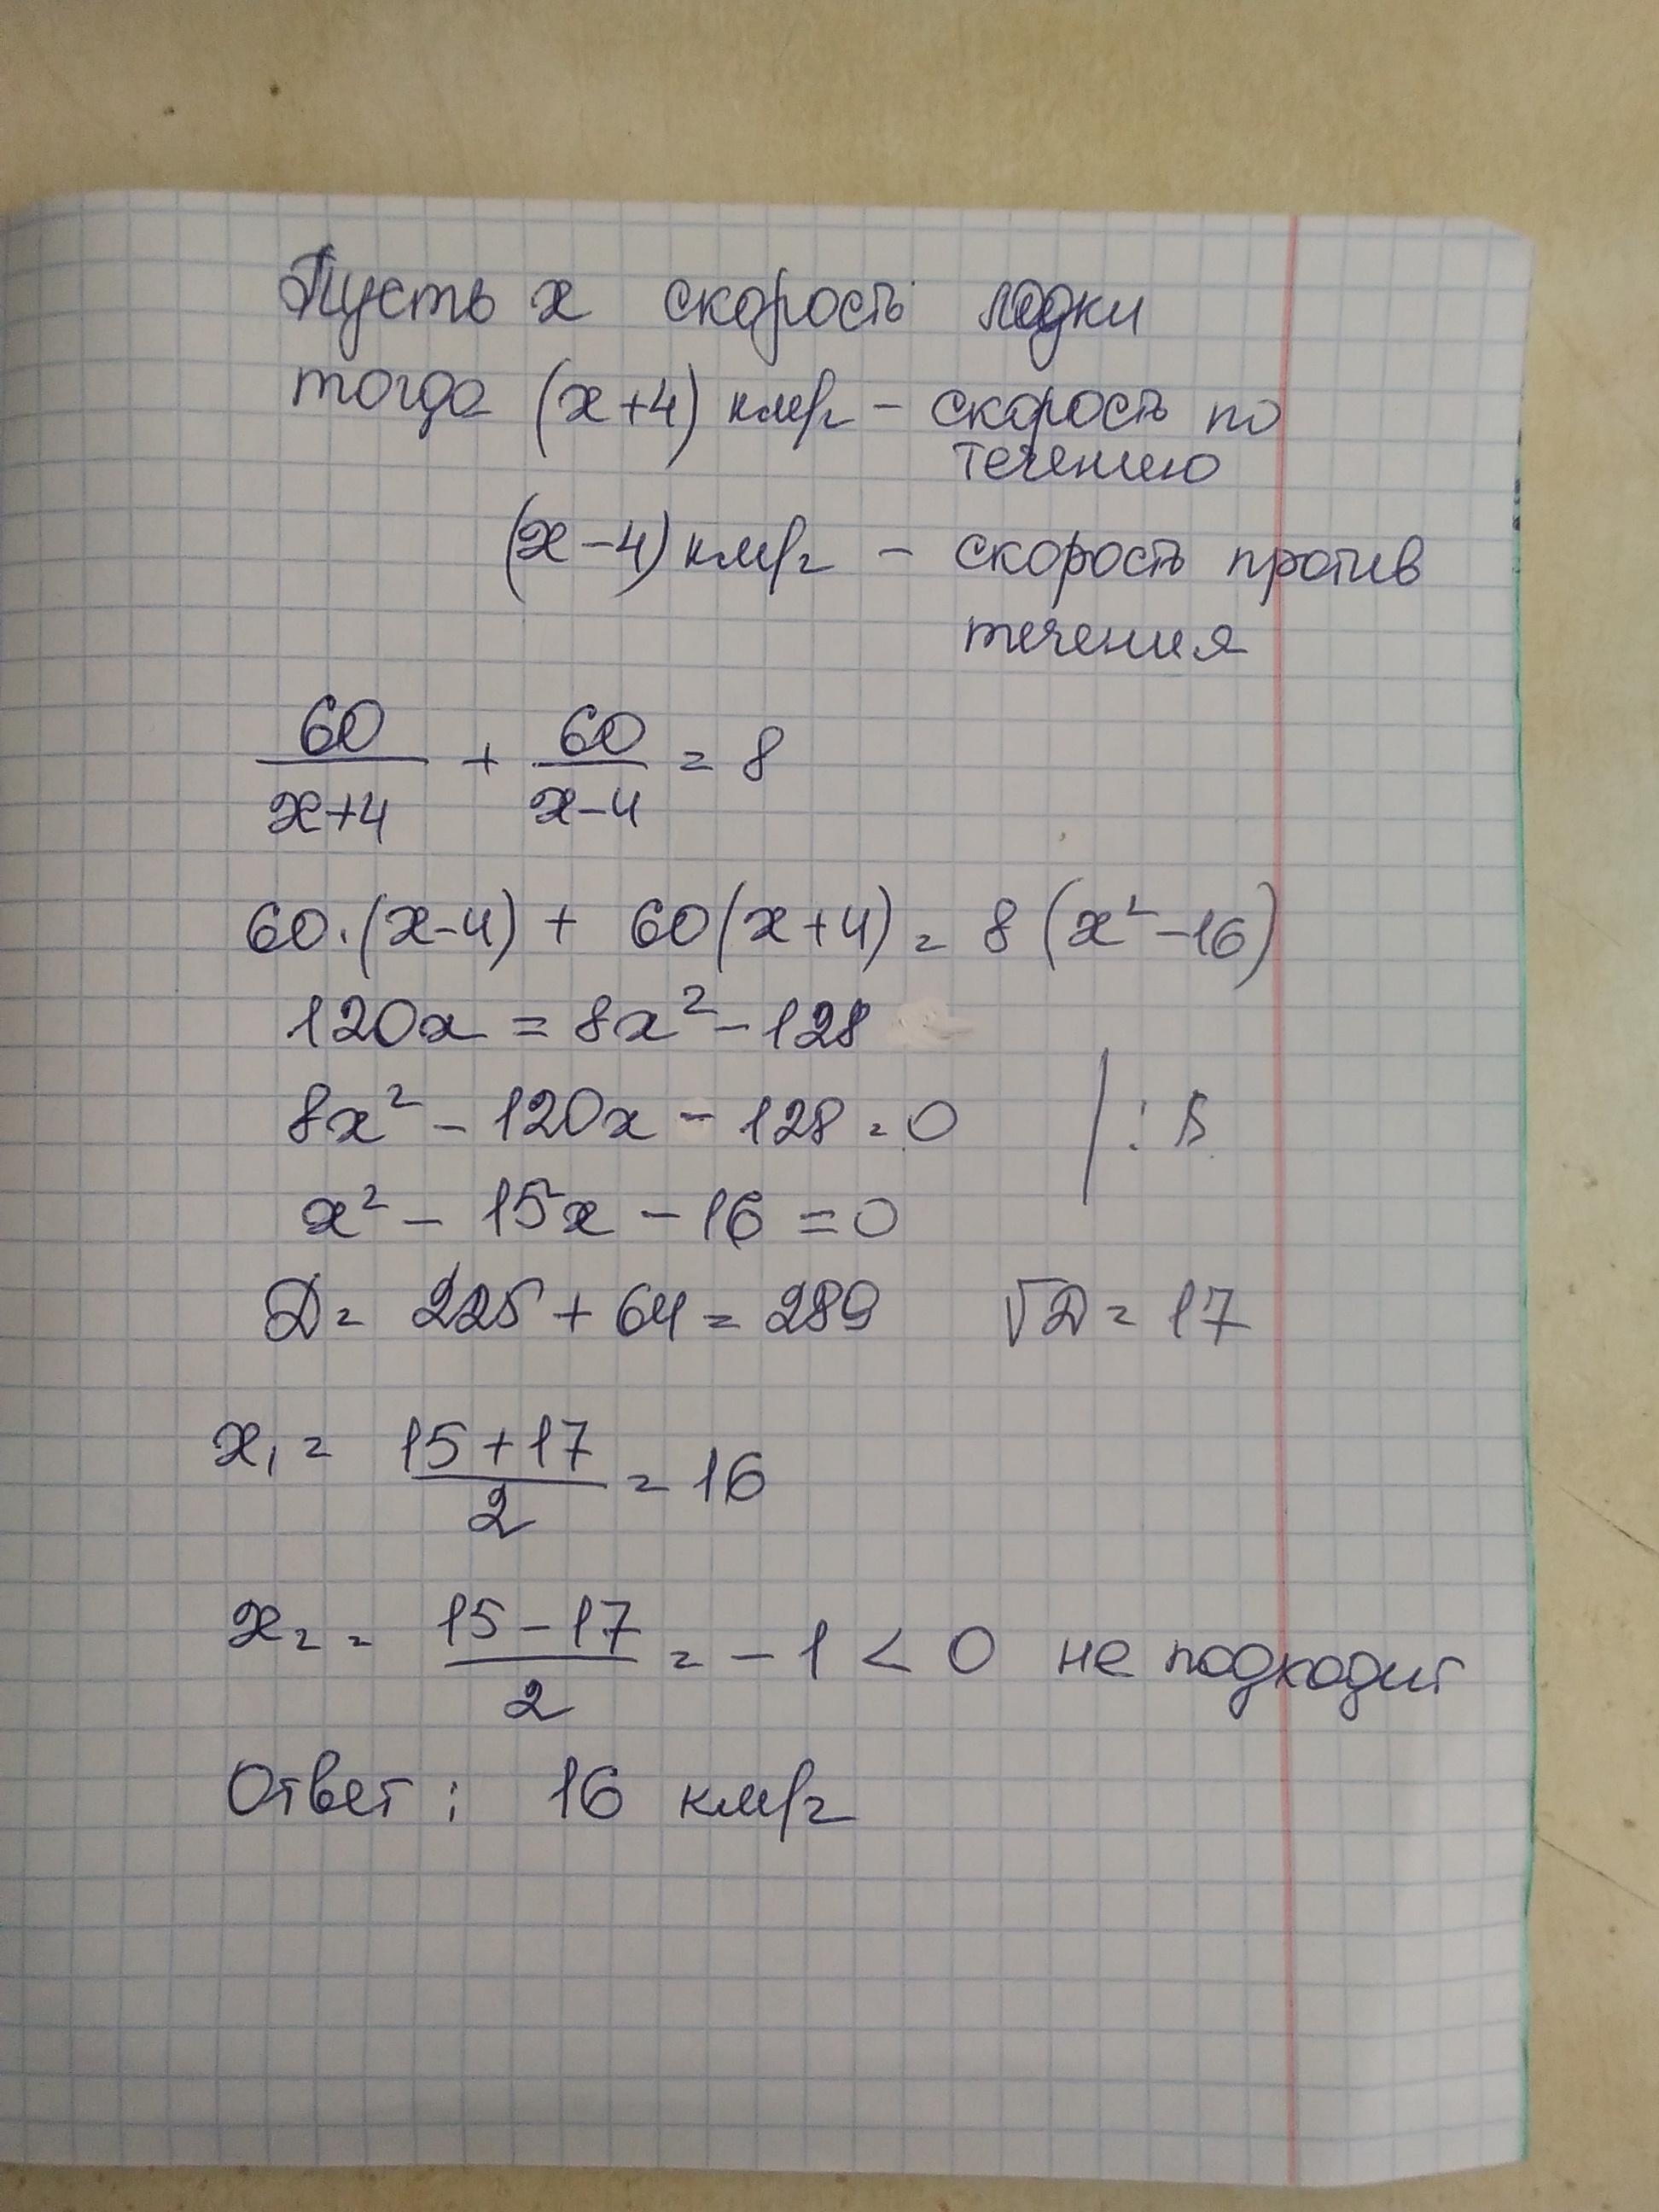 Пусть x скорость лодки
тогда (x+4) км/ч – скорость по
течению
(x–4) км/ч – скорость против
течения
60/(x+4) + 60/(x–4) = 8
60·(x–4) + 60(x+4) = 8(x²–16)
120x = 8x² – 128
8x² – 120x – 128 = 0 | : 8
x² – 15x – 16 = 0
D = 225 + 64 = 289 √D = 17
x₁ = (15+17)/2 = 16
x₂ = (15–17)/2 = –1 < 0 не подходит
Ответ: 16 км/ч